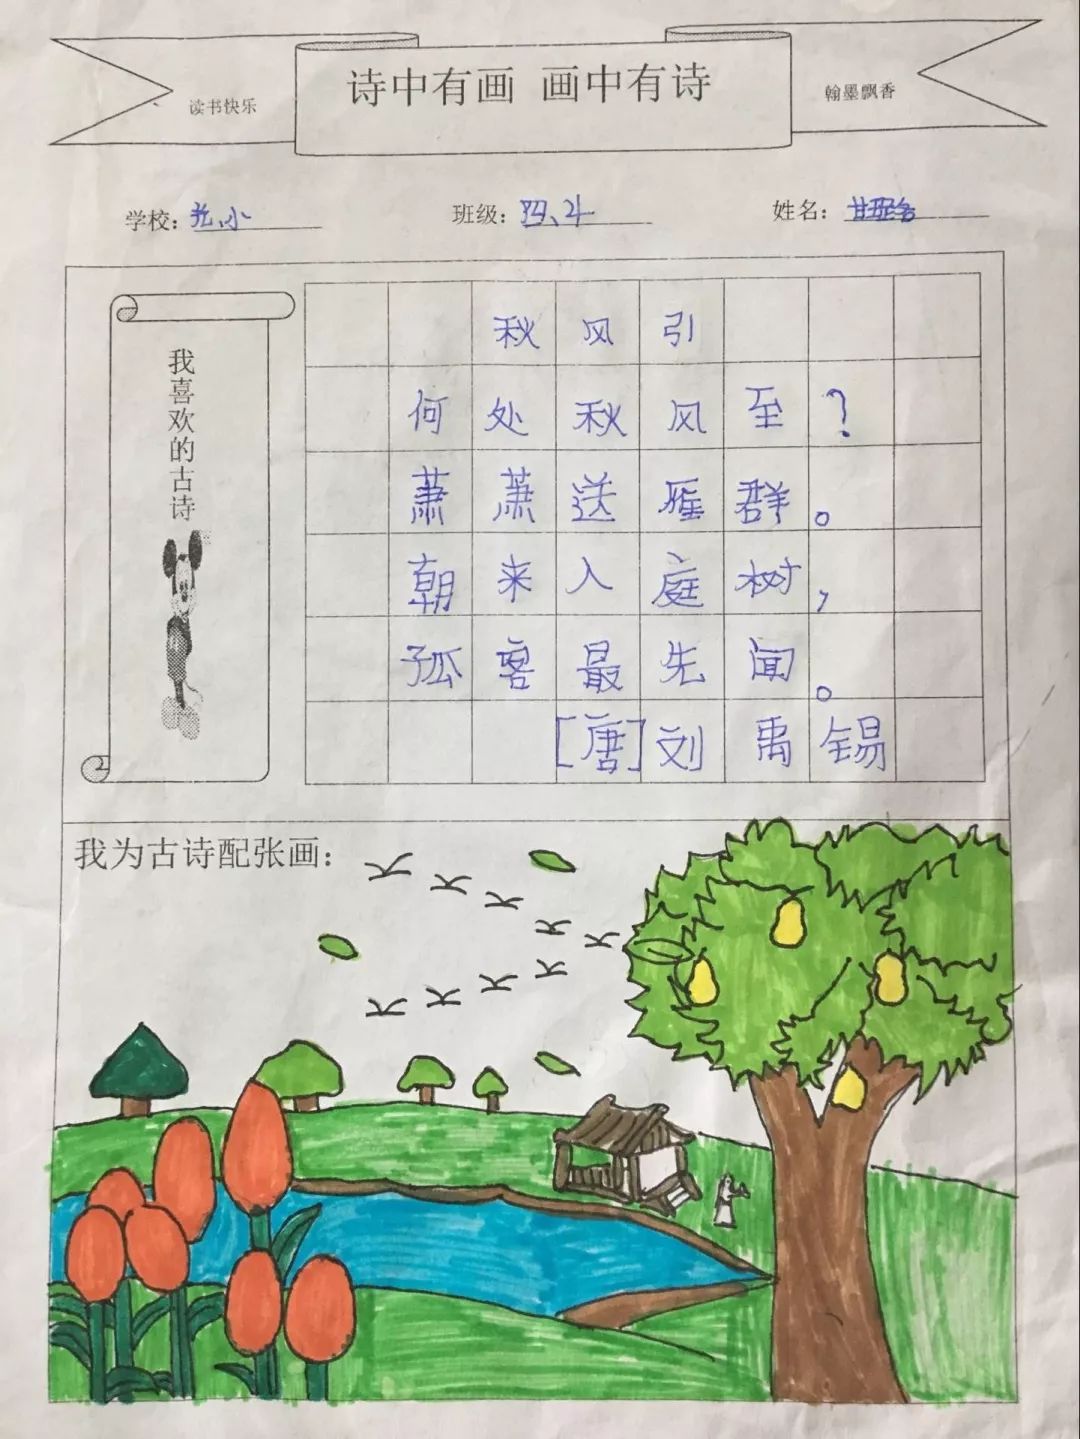 诗中有画 画中有诗
读书快乐
翰墨飘香
学校：光小 班级：四、4 姓名：
我喜欢的古诗
秋风引
何处秋风至？
萧萧送雁群。
朝来入庭树，
孤客最先闻。
[唐]刘禹锡
我为古诗配张画：